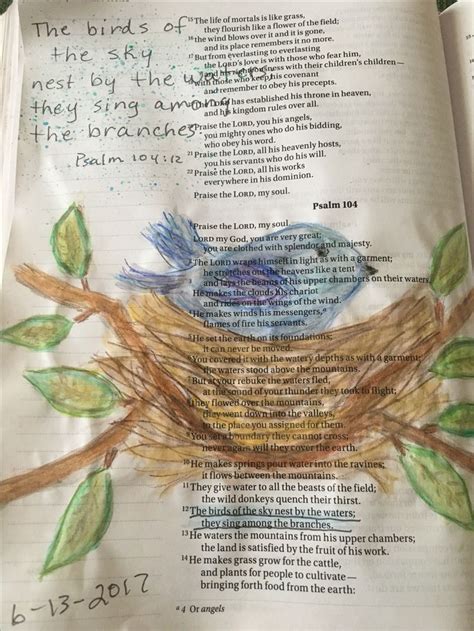 The birds of
the sky
nest by the waters,
they sing among
the branches.
Psalm 104:12
15 The life of mortals is like grass,
they flourish like a flower of the field;
16 the wind blows over it and it is gone,
and its place remembers it no more.
17 But from everlasting to everlasting
the LORD's love is with those who fear him,
and his righteousness with their children's children—
18 with those who keep his covenant
and remember to obey his precepts.
19 The LORD has established his throne in heaven,
and his kingdom rules over all.
20 Praise the LORD, you his angels,
you mighty ones who do his bidding,
who obey his word.
21 Praise the LORD, all his heavenly hosts,
you his servants who do his will.
22 Praise the LORD, all his works
everywhere in his dominion.
Praise the LORD, my soul.
Psalm 104
1 Praise the LORD, my soul.
LORD my God, you are very great;
you are clothed with splendor and majesty.
2 The LORD wraps himself in light as with a garment;
he stretches out the heavens like a tent
3 and lays the beams of his upper chambers on their waters.
He makes the clouds his chariot
and rides on the wings of the wind.
4 He makes winds his messengers,a
flames of fire his servants.
5 He set the earth on its foundations;
it can never be moved.
6 You covered it with the watery depths as with a garment;
the waters stood above the mountains.
7 But at your rebuke the waters fled,
at the sound of your thunder they took to flight;
8 they flowed over the mountains,
they went down into the valleys,
to the place you assigned for them.
9 You set a boundary they cannot cross;
never again will they cover the earth.
10 He makes springs pour water into the ravines;
it flows between the mountains.
11 They give water to all the beasts of the field;
the wild donkeys quench their thirst.
12 The birds of the sky nest by the waters;
they sing among the branches.
13 He waters the mountains from his upper chambers;
the land is satisfied by the fruit of his work.
14 He makes grass grow for the cattle,
and plants for people to cultivate—
bringing forth food from the earth:
a 4 Or angels
6-13-2017